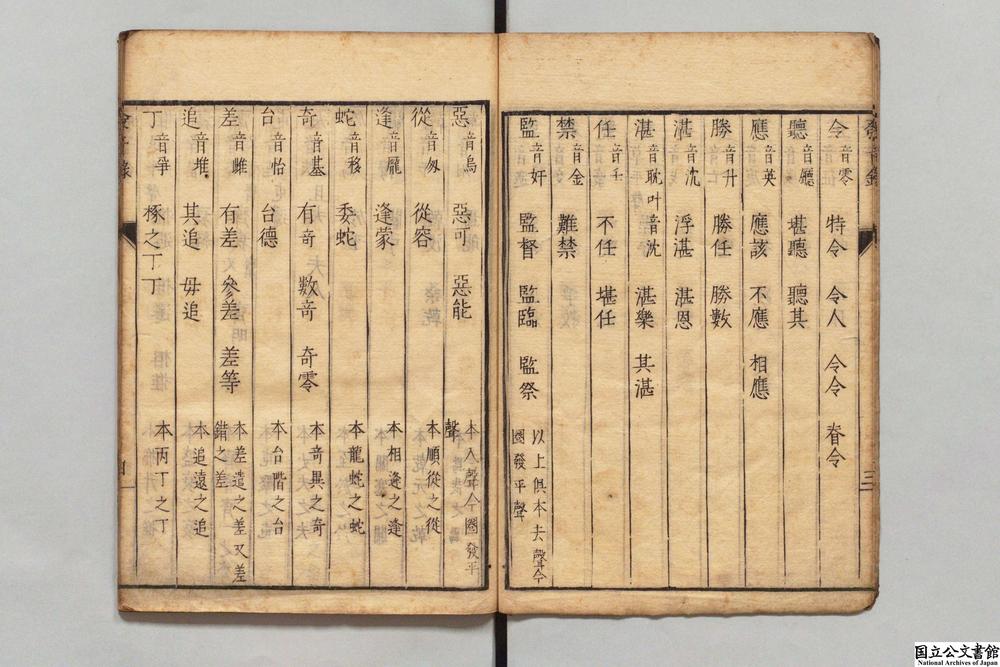 令 音零 特令 令人 令令 眷令
聽 音廳 堪聽 聽其
應 音英 應該 不應 相應
勝 音升 勝任 勝數
湛 音沈 浮湛 湛恩
湛 音耽叶音沈 湛樂 其湛
任 音壬 不任 堪任
禁 音金 難禁
監 音奸 監督 監臨 監祭 以上俱本去聲今圈發平聲
三
惡 音烏 惡可 惡能 本入聲今圈發平聲
從 音匆 從容 本順從之從
逢 音龐 逢蒙 本相逢之逢
蛇 音移 委蛇 本龍蛇之蛇
奇 音基 有奇 數奇 奇零 本奇異之奇
台 音怡 台德 本台階之台
差 音雌 有差 參差 差等 本差遣之差又差錯之差
追 音堆 其追 毋追 本追遠之追
丁 音爭 椓之丁丁 本丙丁之丁
国立公文書館
National Archives of Japan